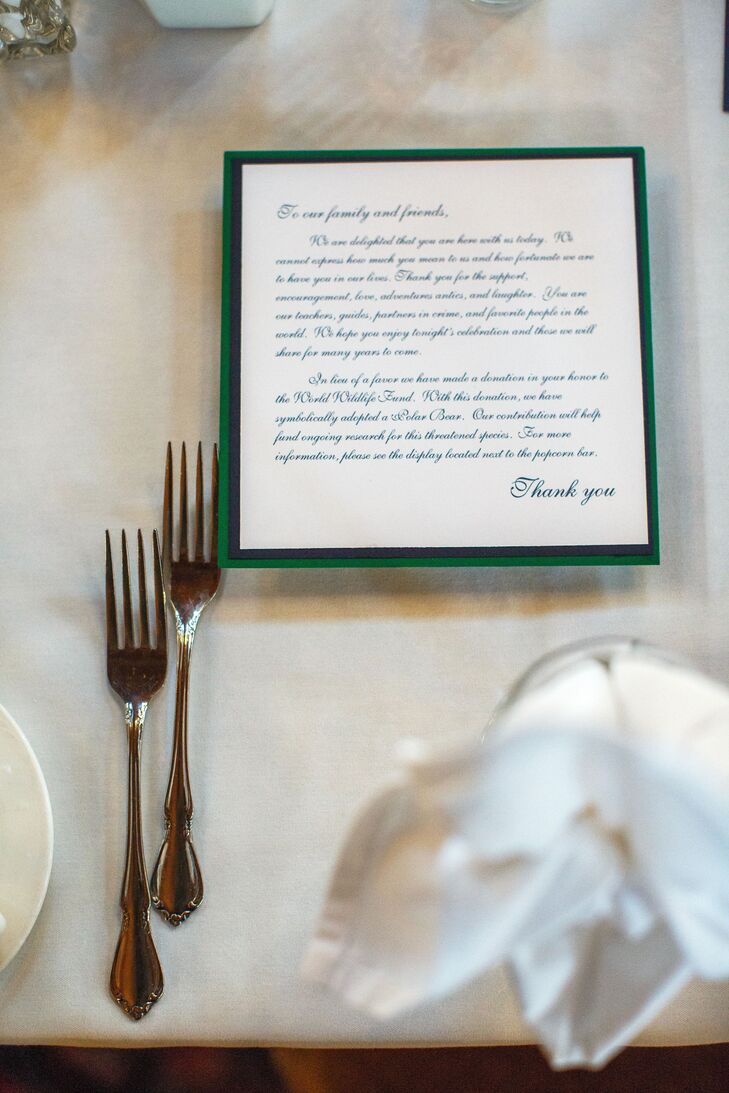 To our family and friends,
We are delighted that you are here with us today. We
cannot express how much you mean to us and how fortunate we are
to have you in our lives. Thank you for the support,
encouragement, love, adventures antics, and laughter. You are
our teachers, guides, partners in crime, and favorite people in the
world. We hope you enjoy tonight's celebration and those we will
share for many years to come.
In lieu of a favor we have made a donation in your honor to
the World Wildlife Fund. With this donation, we have
symbolically adopted a Polar Bear. Our contribution will help
fund ongoing research for this threatened species. For more
information, please see the display located next to the popcorn bar.
Thank you